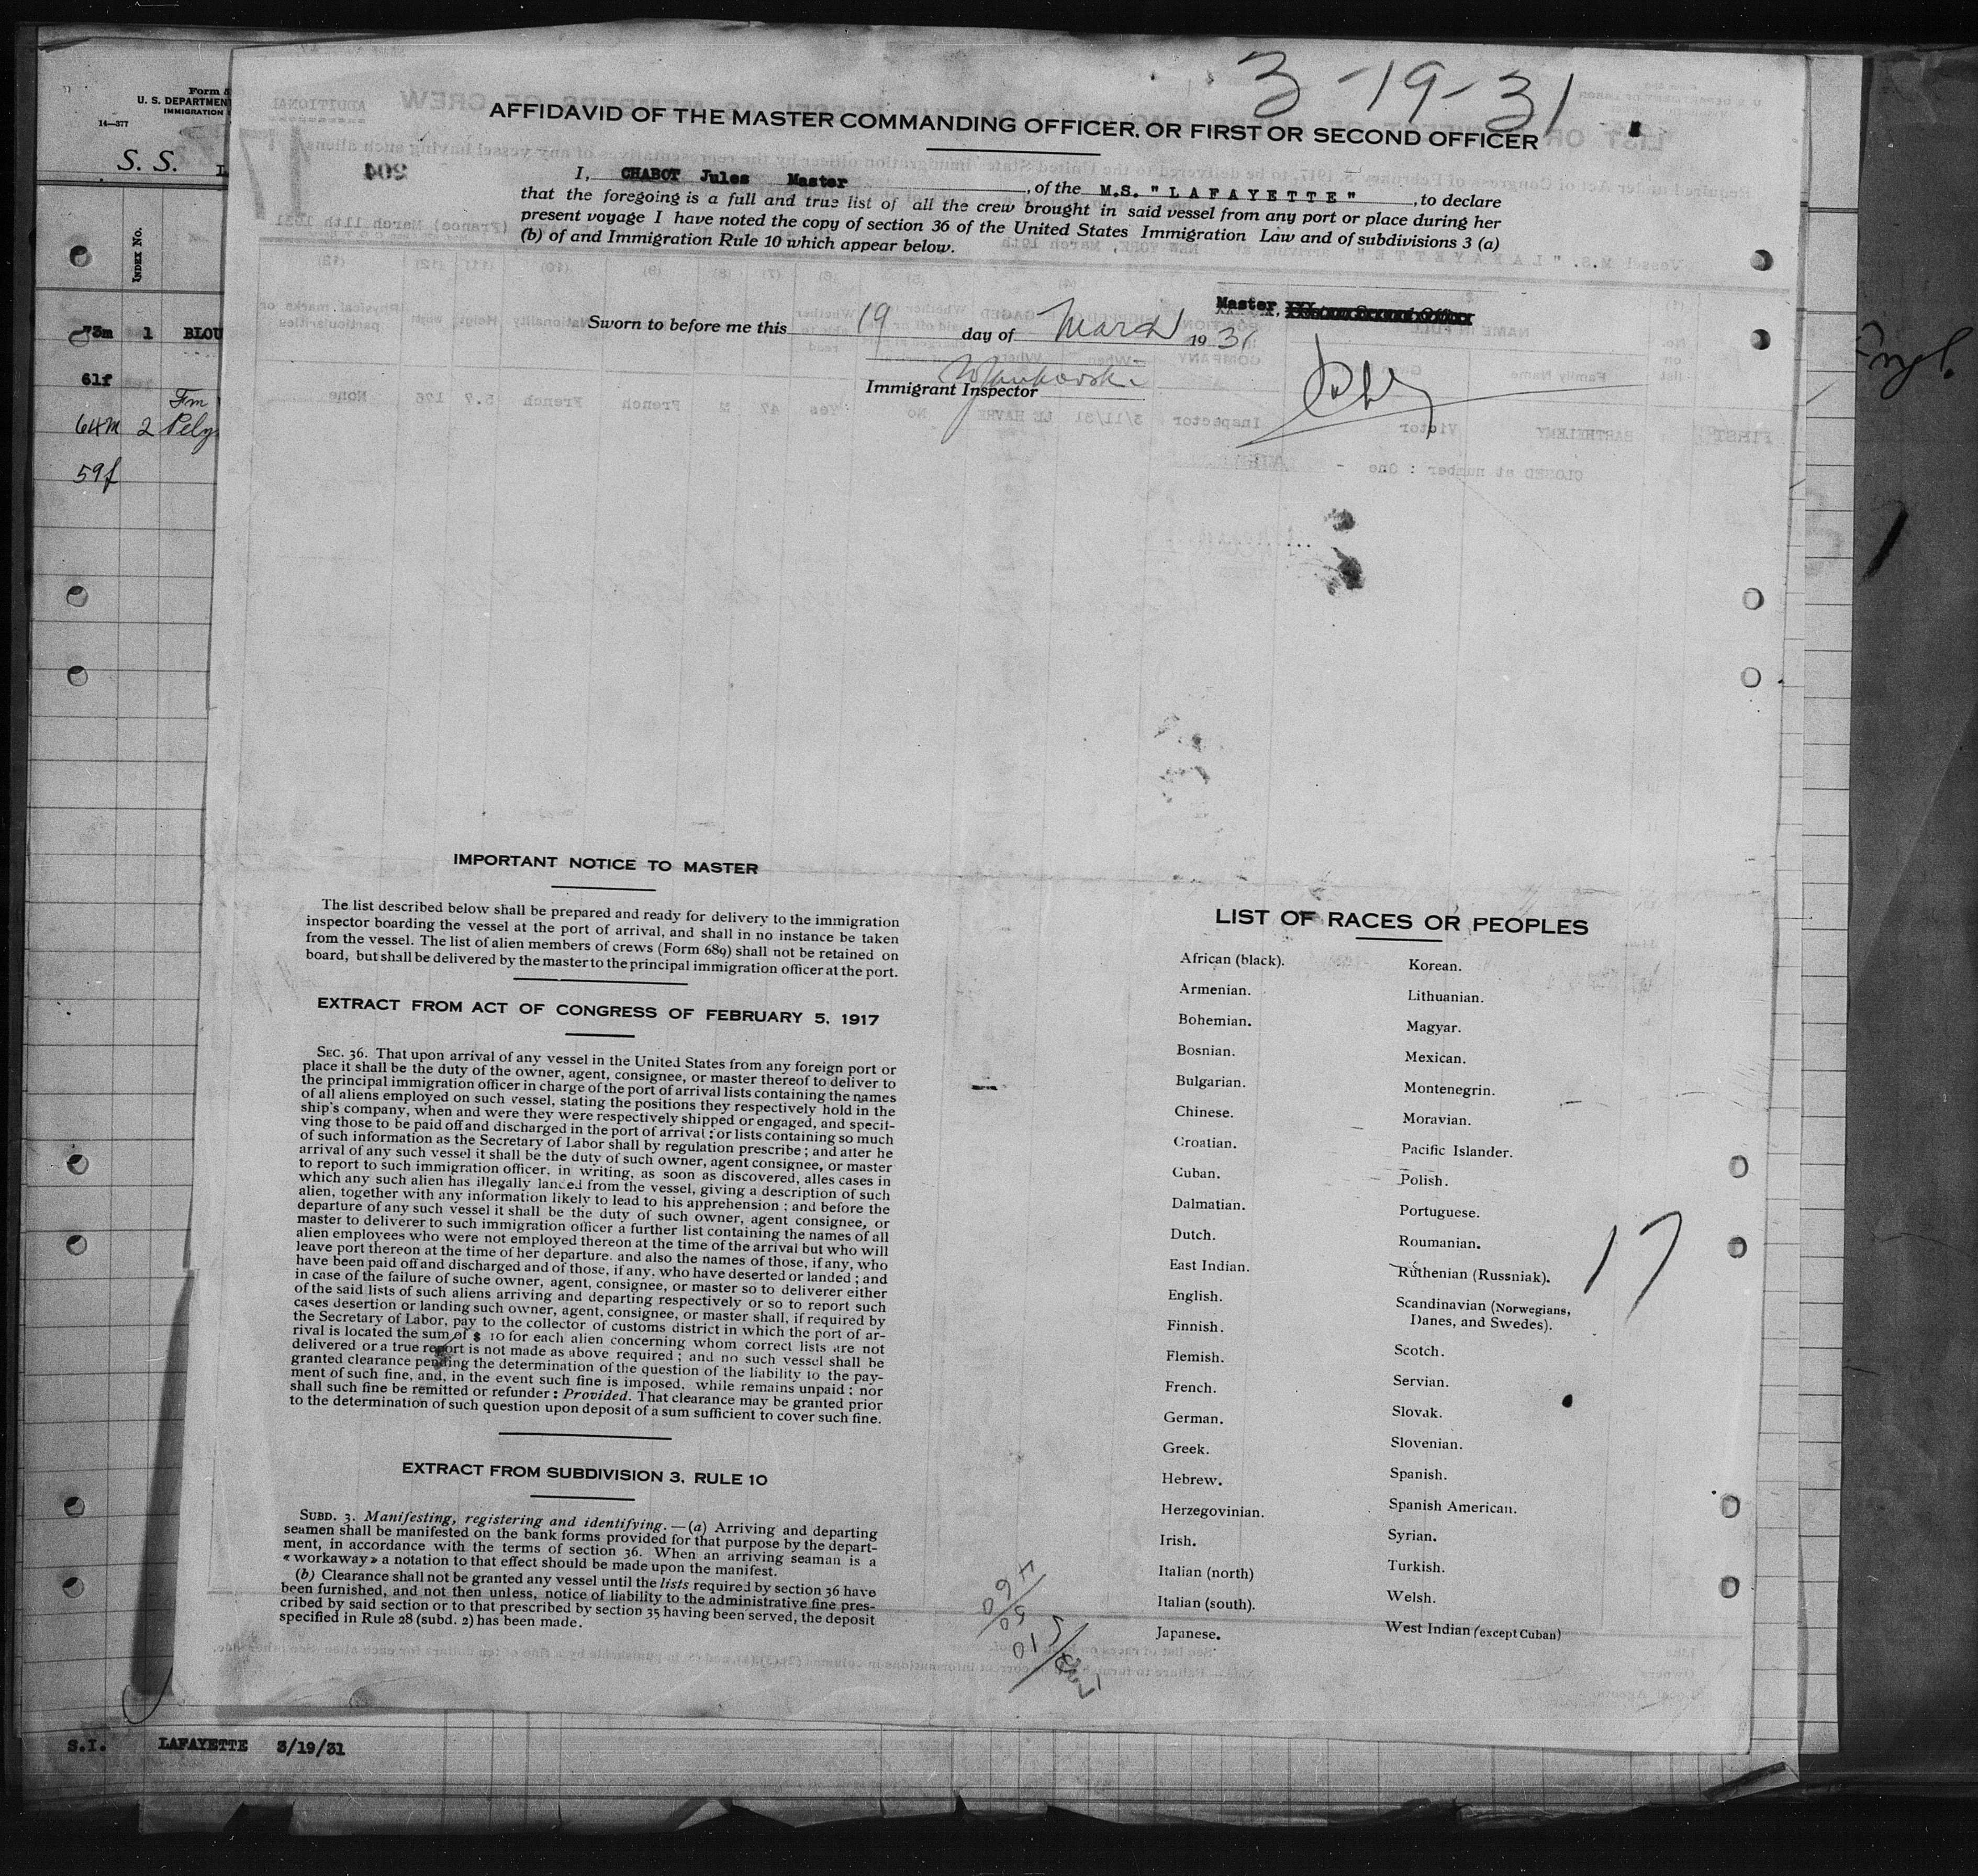 3-19-31
Form
U. S. DEPARTMEN
IMMIGRATION
14—377
S. S.
INDEX No.
73m 1 BLOU
61f
Fm
64m 2 Pely
59f
AFFIDAVID OF THE MASTER COMMANDING OFFICER, OR FIRST OR SECOND OFFICER
I, CHABOT Jules Master, of the M.S. "LAFAYETTE", to declare
that the foregoing is a full and true list of all the crew brought in said vessel from any port or place during her
present voyage I have noted the copy of section 36 of the United States Immigration Law and of subdivisions 3 (a)
(b) of and Immigration Rule 10 which appear below.
Master,
Sworn to before me this 19 day of March 1931
Immigrant Inspector
IMPORTANT NOTICE TO MASTER
The list described below shall be prepared and ready for delivery to the immigration
inspector boarding the vessel at the port of arrival, and shall in no instance be taken
from the vessel. The list of alien members of crews (Form 689) shall not be retained on
board, but shall be delivered by the master to the principal immigration officer at the port.
EXTRACT FROM ACT OF CONGRESS OF FEBRUARY 5, 1917
SEC. 36. That upon arrival of any vessel in the United States from any foreign port or
place it shall be the duty of the owner, agent, consignee, or master thereof to deliver to
the principal immigration officer in charge of the port of arrival lists containing the names
of all aliens employed on such vessel, stating the positions they respectively hold in the
ship's company, when and were they were respectively shipped or engaged, and specif-
ving those to be paid off and discharged in the port of arrival; or lists containing so much
of such information as the Secretary of Labor shall by regulation prescribe; and after he
arrival of any such vessel it shall be the duty of such owner, agent consignee, or master
to report to such immigration officer, in writing, as soon as discovered, alles cases in
which any such alien has illegally landed from the vessel, giving a description of such
alien, together with any information likely to lead to his apprehension; and before the
departure of any such vessel it shall be the duty of such owner, agent consignee, or
master to deliverer to such immigration officer a further list containing the names of all
alien employees who were not employed thereon at the time of the arrival but who will
leave port thereon at the time of her departure. and also the names of those, if any, who
have been paid off and discharged and of those, if any, who have deserted or landed; and
in case of the failure of suche owner, agent, consignee, or master so to deliverer either
of the said lists of such aliens arriving and departing respectively or so to report such
cases desertion or landing such owner, agent, consignee, or master shall, if required by
the Secretary of Labor, pay to the collector of customs district in which the port of ar-
rival is located the sum of $ 10 for each alien concerning whom correct lists are not
delivered or a true report is not made as above required; and no such vessel shall be
granted clearance pending the determination of the question of the liability to the pay-
ment of such fine, and, in the event such fine is imposed, while remains unpaid; nor
shall such fine be remitted or refunder: Provided. That clearance may be granted prior
to the determination of such question upon deposit of a sum sufficient to cover such fine.
EXTRACT FROM SUBDIVISION 3, RULE 10
SUBD. 3. Manifesting, registering and identifying. — (a) Arriving and departing
seamen shall be manifested on the bank forms provided for that purpose by the depart-
ment, in accordance with the terms of section 36. When an arriving seaman is a
« workaway » a notation to that effect should be made upon the manifest.
(b) Clearance shall not be granted any vessel until the lists required by section 36 have
been furnished, and not then unless, notice of liability to the administrative fine pres-
cribed by said section or to that prescribed by section 35 having been served, the deposit
specified in Rule 28 (subd. 2) has been made.
LIST OF RACES OR PEOPLES
African (black).
Armenian.
Bohemian.
Bosnian.
Bulgarian.
Chinese.
Croatian.
Cuban.
Dalmatian.
Dutch.
East Indian.
English.
Finnish.
Flemish.
French.
German.
Greek.
Hebrew.
Herzegovinian.
Irish.
Italian (north)
Italian (south).
Japanese.
Korean.
Lithuanian.
Magyar.
Mexican.
Montenegrin.
Moravian.
Pacific Islander.
Polish.
Portuguese.
Roumanian.
Ruthenian (Russniak).
Scandinavian (Norwegians,
Danes, and Swedes).
Scotch.
Servian.
Slovak.
Slovenian.
Spanish.
Spanish American.
Syrian.
Turkish.
Welsh.
West Indian (except Cuban)
17
S.I. LAFAYETTE 3/19/31